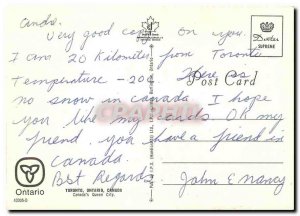 Candy.
Very good on you.
I am 20 Kilometers from Toronto
Temperature -20 There is
no snow in Canada I hope
you like my cards Oh my
friend. you have a friend in
Canada.
Best Regards
John & Nancy
Post Card
Dexter
SUPREME
Ontario
TORONTO, ONTARIO, CANADA
Canada's Queen City.